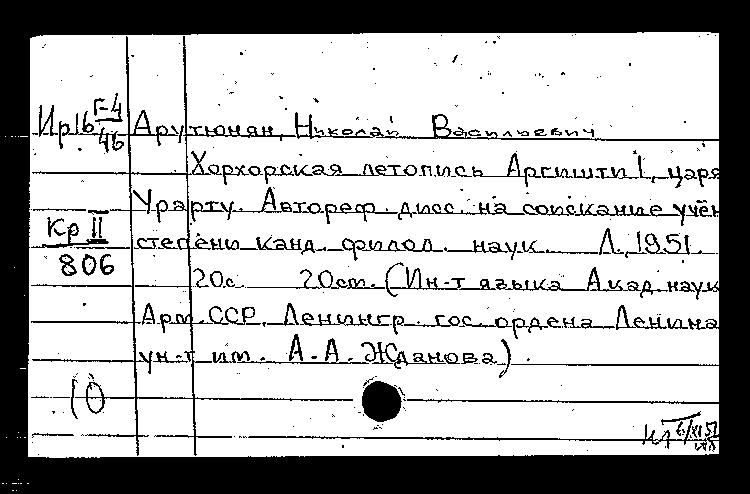 Ир16 Г-4/46
Арутюнян, Николай Васильевич
Хорхорская летопись Аргишти I, царя
Урарту. Автореф. дисс. на соискание учён
Кр II
806
степени канд. филол. наук. Л., 1951.
20с. 20см. (Ин-т языка Акад. наук
Арм. ССР, Ленингр. гос. ордена Ленина
ун-т им. А. А. Жданова).
10